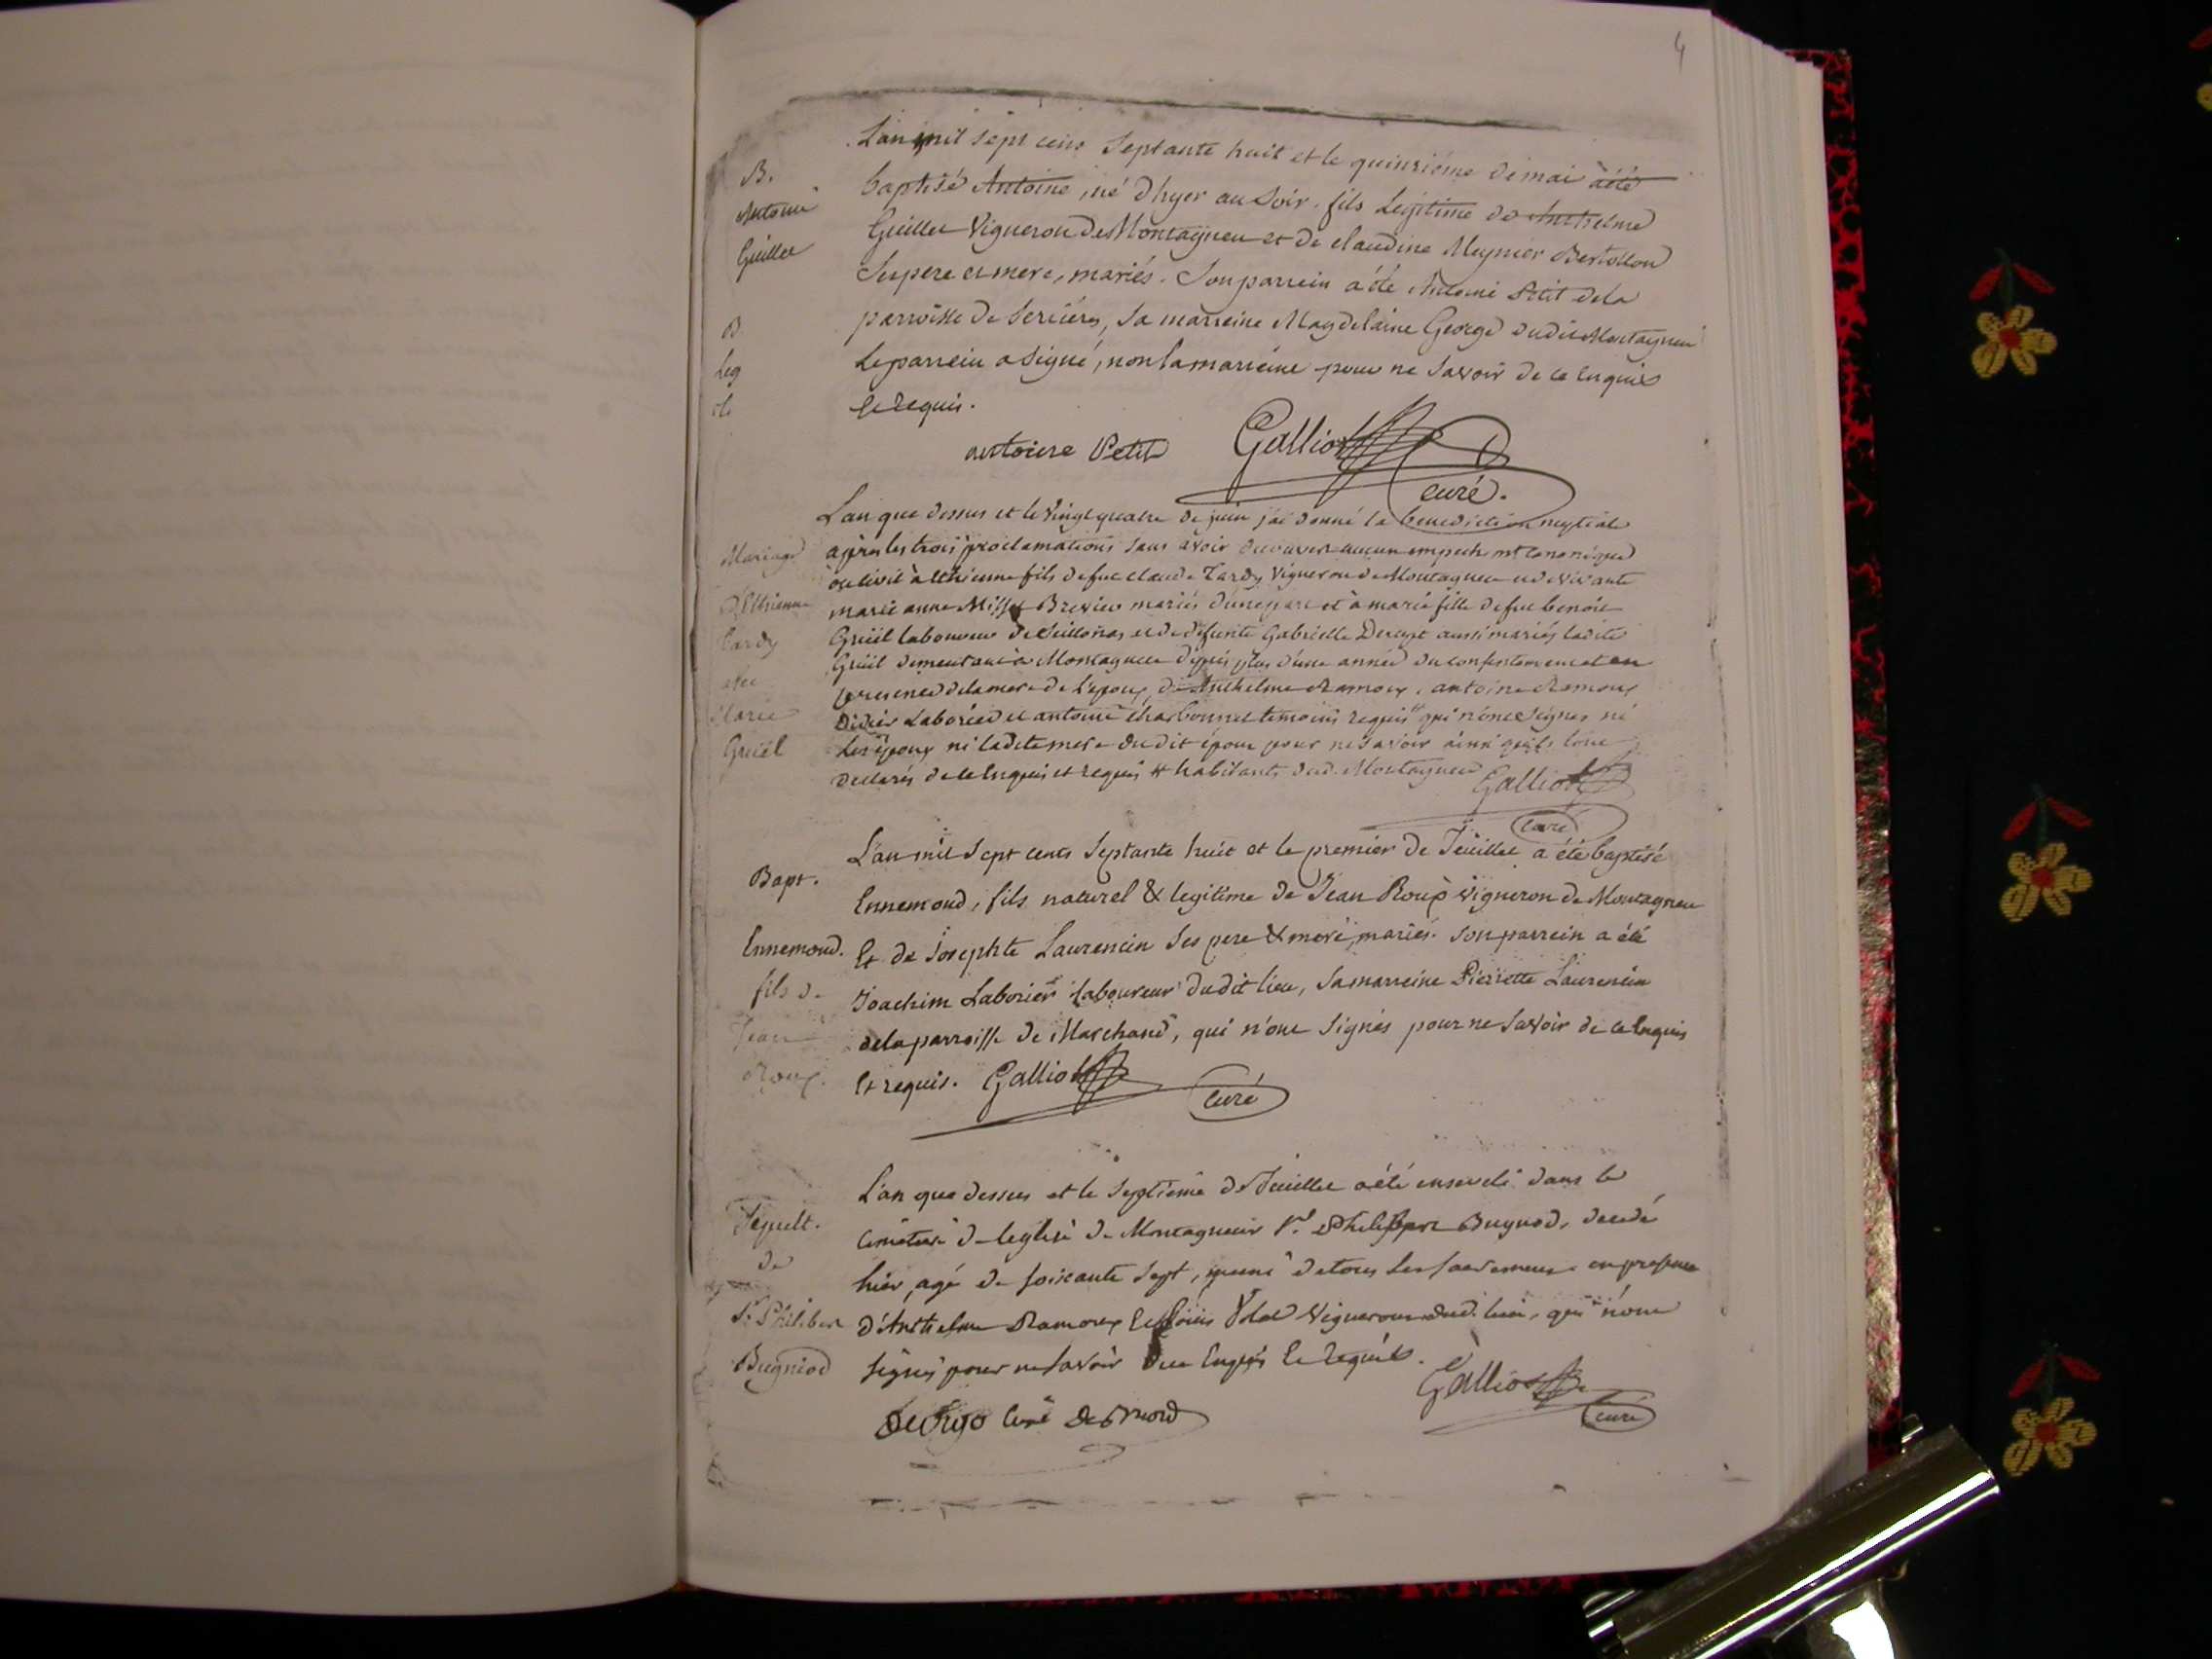 4
L'an mil sept cens septante huit et le quinzième de mai a été
B.
baptisé Antoine, né d'hyer au soir, fils legitime de Anthelme
Antoine
Guillet
Guillet Vigneron de Montagneu et de claudine Meynier Bertollon
Ses pere et mere, mariés. Son parrein a été Antoine Petit de la
parroisse de Serrières, sa marreine Magdelaine George dudit Montagneu
B.
Leg
Le parrein a signé, non la marreine pour ne savoir de ce enquis
et requis.
antoine Petit Galliot
curé.
L'an que dessus et le vingt quatre de juin j'ai donné la benediction nuptiale
Mariage
après les trois proclamations sans avoir decouvert aucun empechemt canonique
ou civil à Ethienne fils de feu claude Tardy Vigneron de Montagneu et de vivante
d'Ethienne
marie anne Brevier mariés d'une part et à marie fille de feu benoit
Tardy
Gruël laboureur de Seillonas et de defunte Gabrielle aussi mariés ladite
Gruël demeurant à Montagneu depuis plus d'une année du consentement et en
avec
presence de la mere de l'epoux, d'Anthelme Ramoux, antoine Ramoux
Marie
Didier Laborier et antoine charbonnet temoins requis # qui n'ont signés ni
Gruël
les epoux ni ladite mere dudit époux pour ne savoir ainsi qu'ils l'ont
declarés de ce enquis et requis # habitants dud. Montagneu Galliot
curé
L'an mil sept cents septante huit et le premier de Jeuillet a été baptisé
Bapt.
Ennemond, fils naturel & legitime de Jean Roux vigneron de Montagneu
Ennemond.
Et de Josephte Laurencin ses pere & mere, mariés. son parrein a été
fils de
Joachim Laborier laboureur dudit lieu, sa marreine Pierrette Laurencin
Jean
de la parroisse de Marchand, qui n'ont signés pour ne savoir de ce enquis
Roux.
Et requis. Galliot
curé
L'an que dessus et le septieme de Jeuillet a été enseveli dans le
Sepult.
cimetiere de leglise de Montagneu Sr. Philibert Bugnod, decedé
de
hier, agé de soixante sept, muni de tous les sacremens en presence
Sr. Philibert
d'Anthelme Ramoux et Louis Vigneron dud. lieu, qui n'ont
Bugniod
signés pour ne savoir de ce Enquis Et requis.
Galliot
curé
curé de Briord